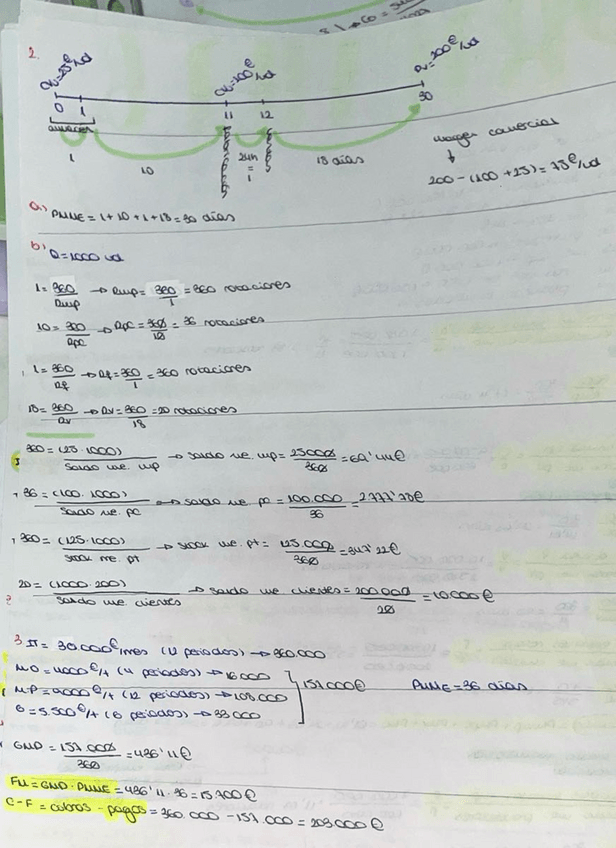 2.
Qu=25€/ud
Qu=100€/ud
Qu=200€/ud
0 1 11 12 30
almacén
1 10 24h = 1 18 días
margen comercial
↓
200 - (100 + 25) = 75€/ud
a) PMME = 1 + 10 + 1 + 18 = 30 días
b) Q = 1000 ud
1 = 360/Rmp → Rmp = 360/1 = 360 rotaciones
10 = 360/Rpc → Rpc = 360/10 = 36 rotaciones
1 = 360/Rf → Rf = 360/1 = 360 rotaciones
18 = 360/Rv → Rv = 360/18 = 20 rotaciones
360 = (25·1000)/Saldo me. mp → saldo me. mp = 25000/360 = 69'44€
36 = (100·1000)/Saldo me. pc → saldo me. pc = 100.000/36 = 2777'78€
360 = (125·1000)/Stock me. pt → stock me. pt = 125.000/360 = 347'22€
20 = (1000·200)/Saldo me clientes → saldo me clientes = 200000/20 = 10000€
3 IT = 30.000€/mes (12 periodos) → 360.000
MO = 4000€/t (4 periodos) → 16000
MP = 9000€/t (12 periodos) → 108000
G = 5.500€/t (6 periodos) → 33000
157000€ PMME = 36 días
GMD = 157.000/360 = 436'11€
FM = GMD · PMME = 436'11 · 36 = 15700€
C-F = cobros - pagos = 360.000 - 157.000 = 203000€